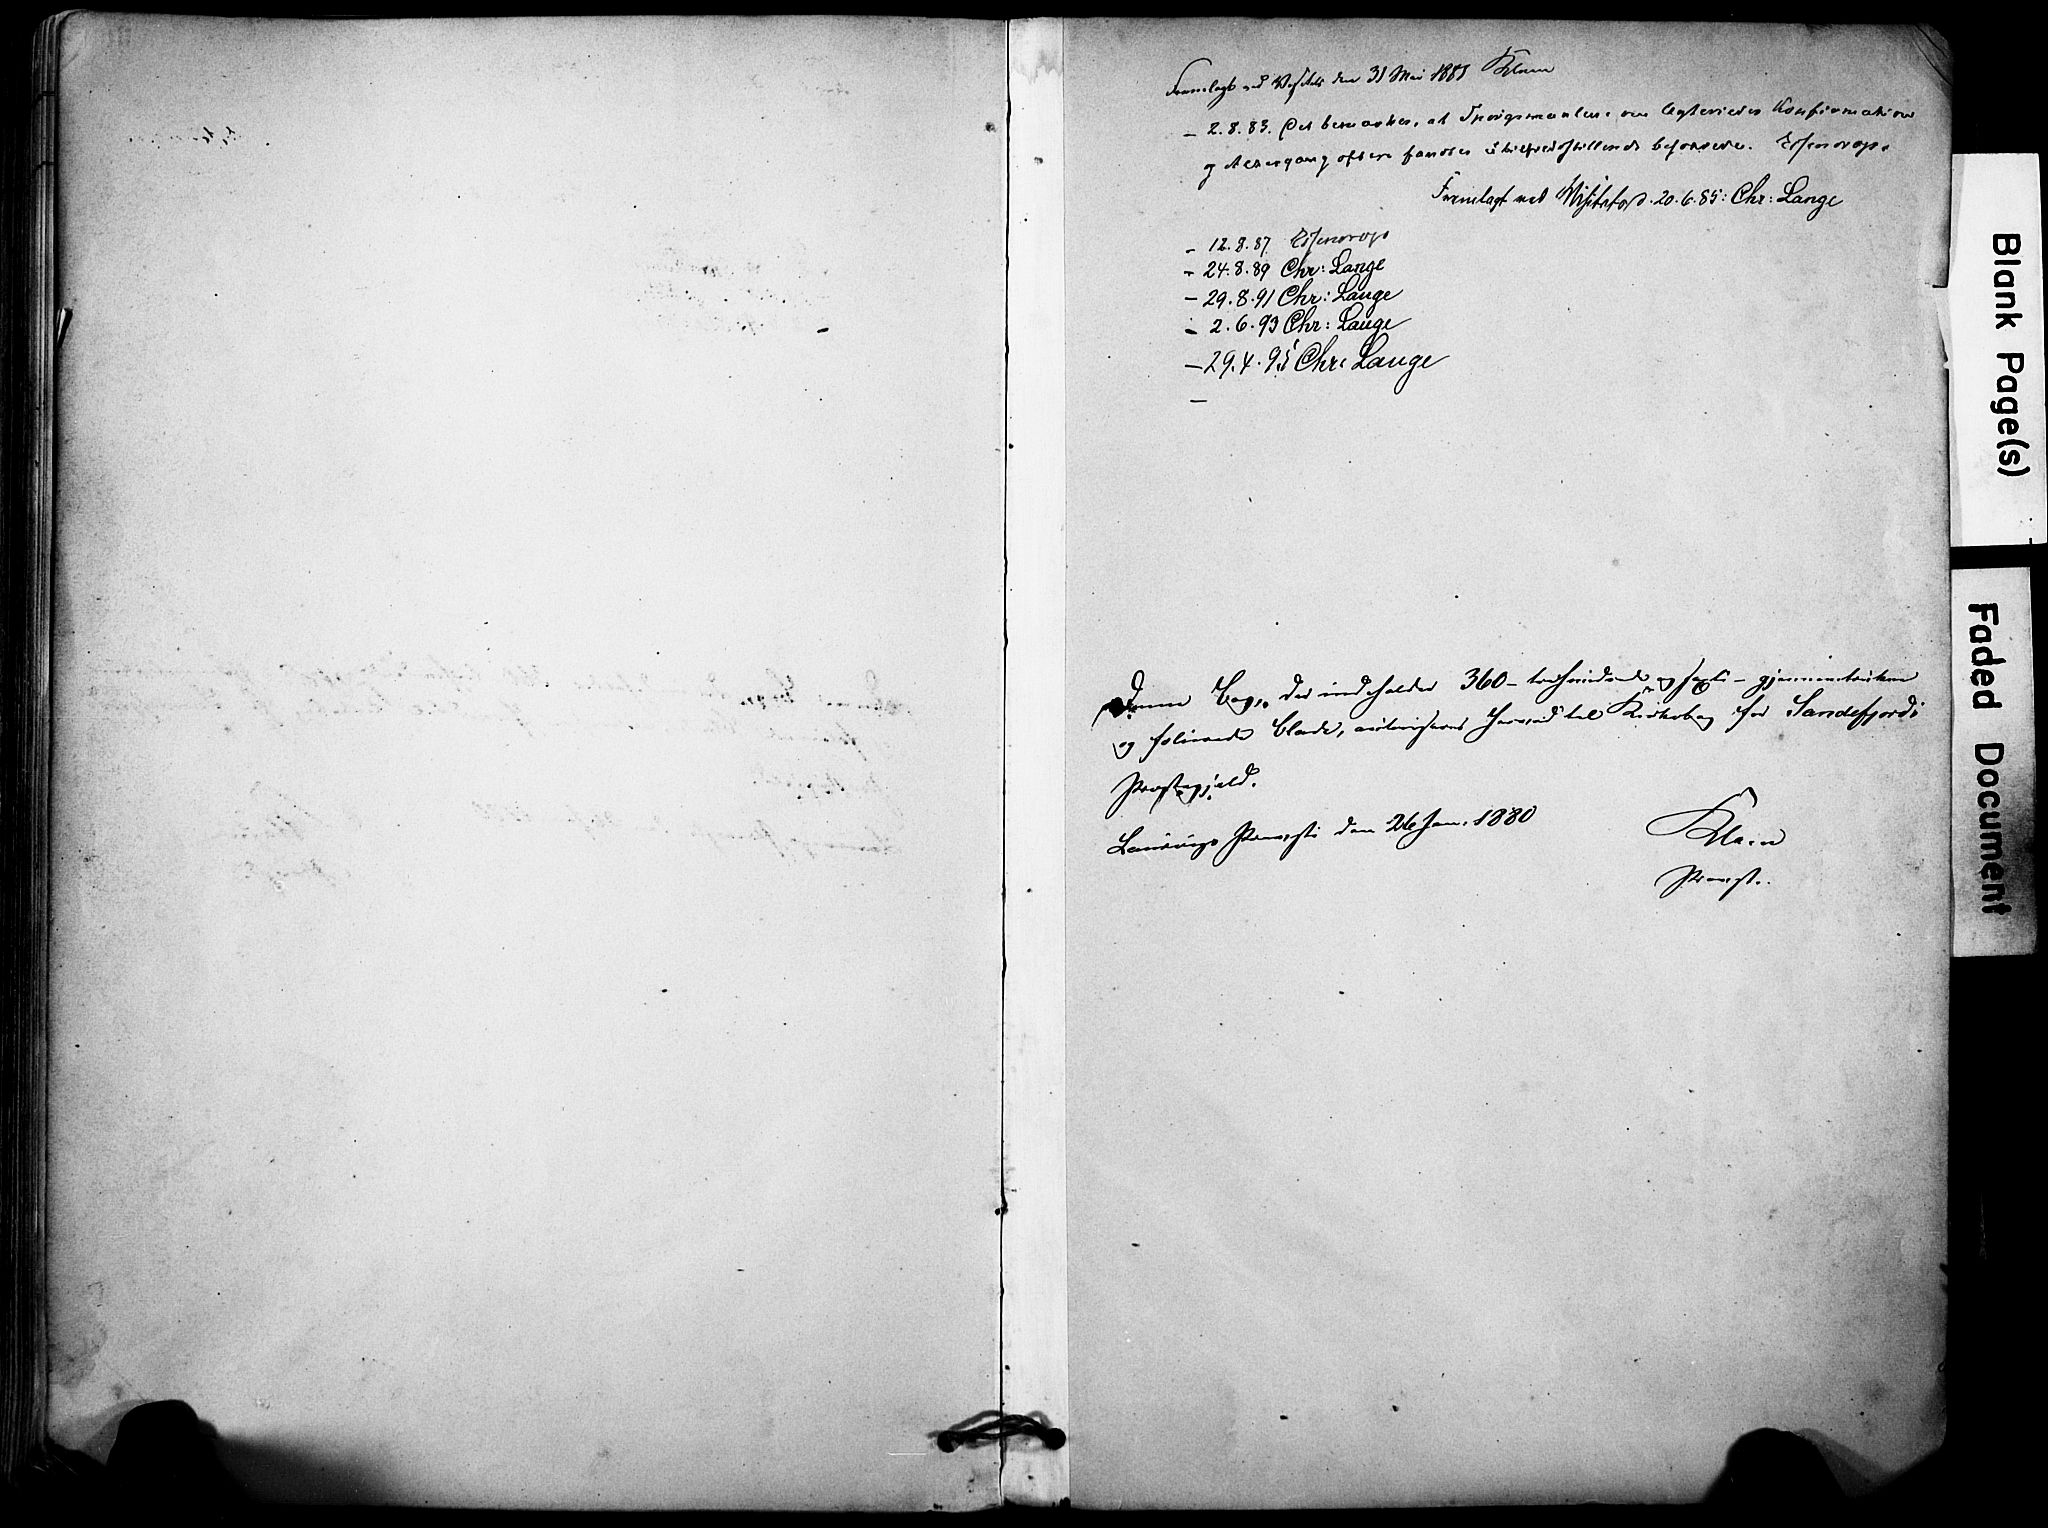 Fremlagt ved Visitats den 31 Mai 1881 Klem
– 2.8.83. Det bemærkes, at Spørgsmaalene om Ægteviedes Konfirmation
og Altergang oftere fandtes utilfredsstillende besvarede. Essendrop.
Fremlagt ved Visitats d. 20.6.85: Chr: Lange
– 12.8.87 Essendrop
– 24.8.89 Chr: Lange
– 29.8.91 Chr: Lange
– 2.6.93 Chr: Lange
– 29.4.95 Chr: Lange
–
Denne Bog, der indeholder 360 – trehundrede og sexti – gjennemtrukne
og folierede Blade, autoriseres herved til Kirkebog for Sandefjords
Præstegjeld.
Laurvigs Provsti den 26 Jan. 1880
Klem
Provst.
Blank Page(s)
Faded Document